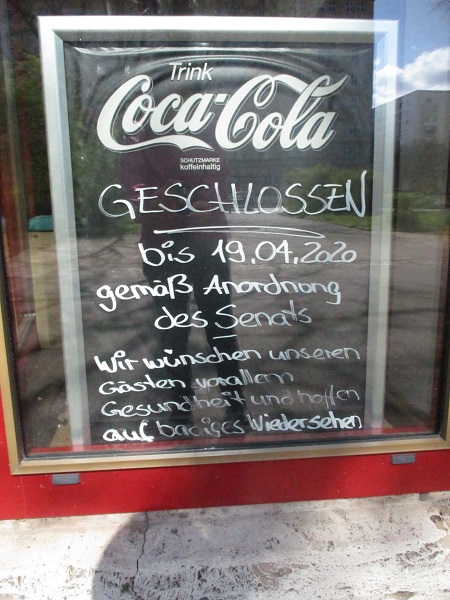 Trink
Coca-Cola
SCHUTZMARKE
koffeinhaltig
GESCHLOSSEN
bis 19.04.2020
gemäß Anordnung
des Senats
Wir wünschen unseren
Gästen vorallem
Gesundheit und hoffen
auf baldiges Wiedersehen